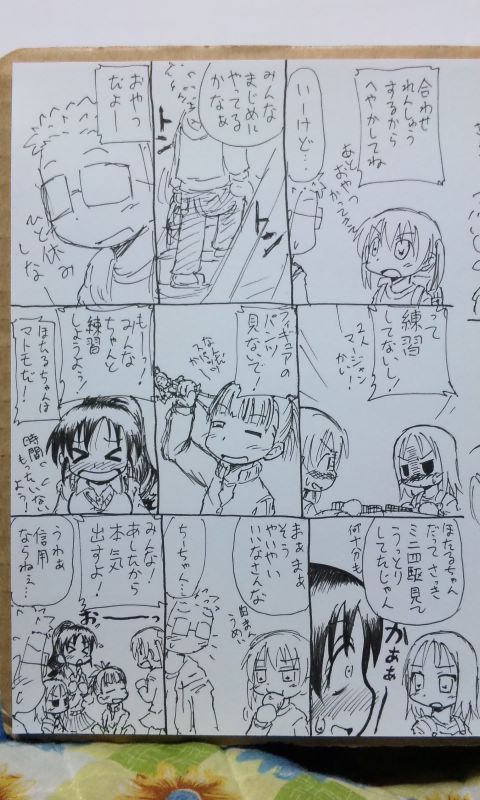 合わせ
れんしゅう
するから
へやかしてね
あと
おやつ
かってきて
いーけど…
みんな
まじめに
やってる
かなぁ
トン
トン
おやつ
だよー
ひと休み
しな
って
練習
してないし!
2人
マージャン
かい!
フィギュアの
パンツ
見ないで!
もうっ!
みんな
ちゃんと
練習
しようよう!
ほたるちゃんは
マトモだ!
時間
もったいない
よう!
ほたるちゃん
だってさっき
ミニ四駆見て
うっとり
してたじゃん
何十分も
かぁぁ
まぁまぁ
そう
やいやい
いいなさんな
肉まん
うめー
ちちゃん…
みんな!
あしたから
本気
出すよ!
おーーっ
うわぁ
信用
ならねぇ…